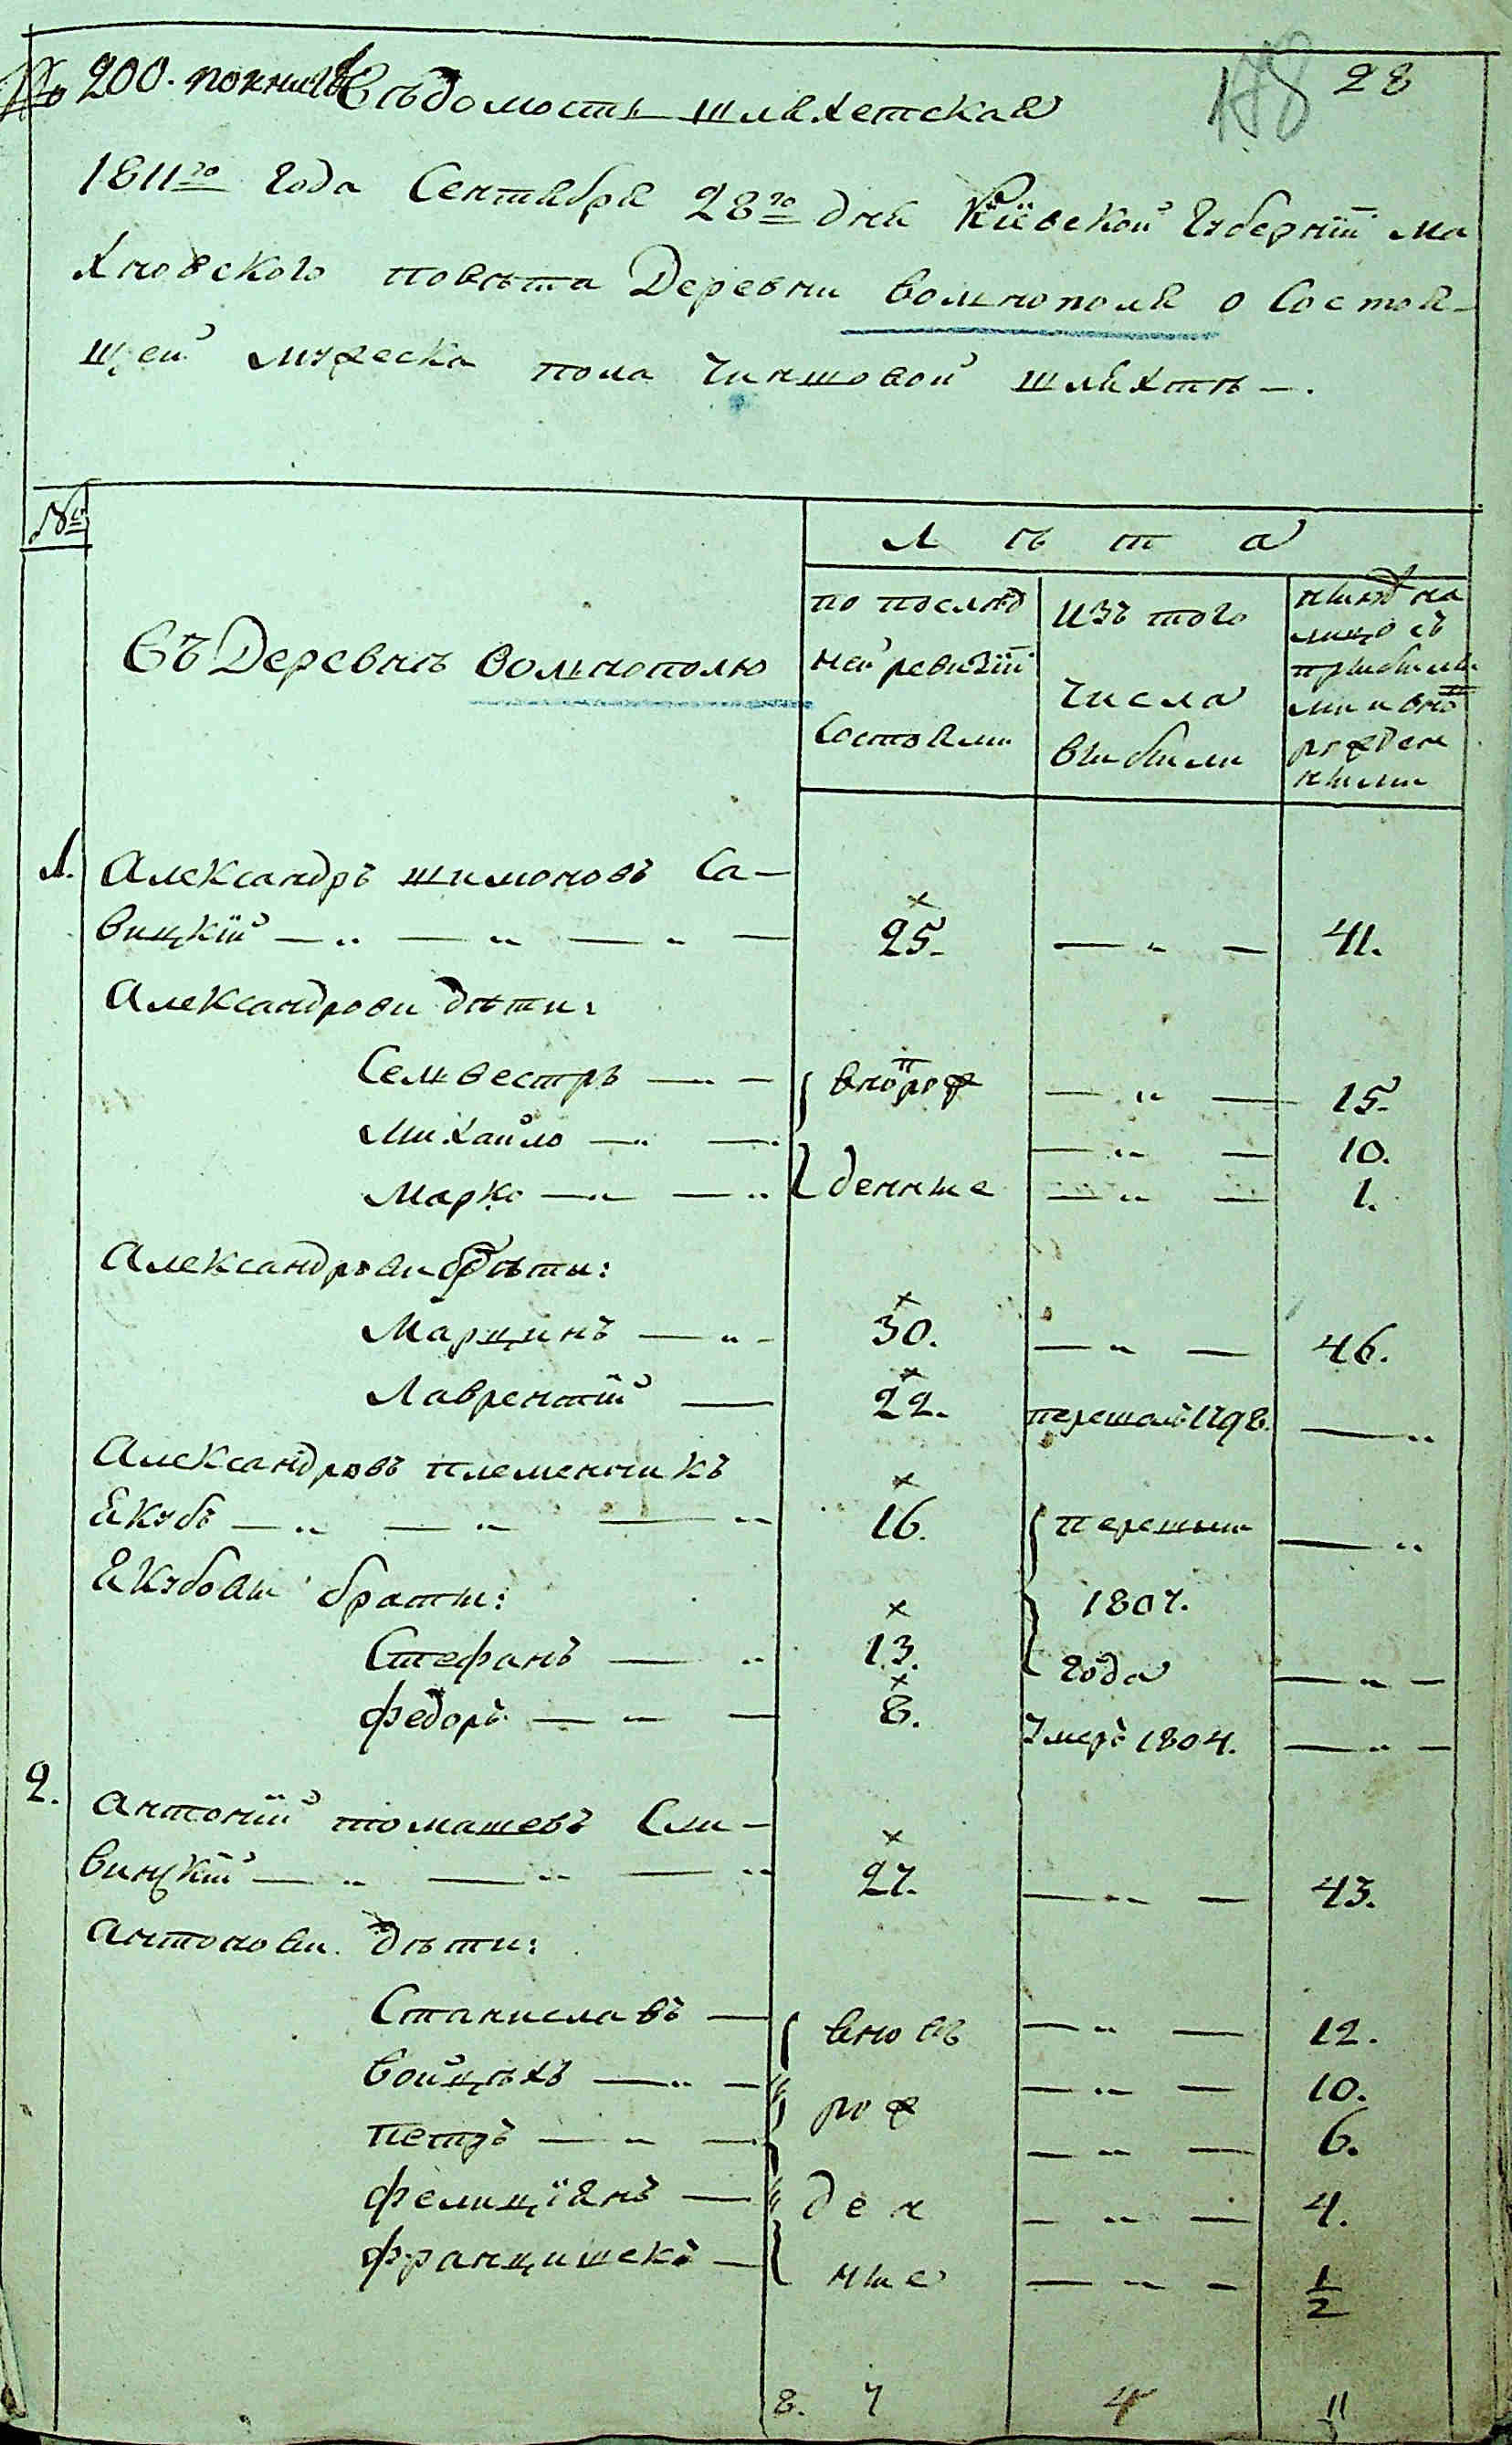 № 200. по книгѣ Вѣдомость шляхетская 178 28
1811го года Сентября 28го дня Кіевской Губерніи Ма
хновского повѣта Деревни вольнополя о Состоя-
щей мужеска пола чиншовой шляхтѣ —.
№
Л ѣ т а
въ Деревнѣ вольнополю
по послѣд
ней ревизіи
Состояли
изъ того
числа
выбыли
нынѣ на
лицо съ
прибылы
ми и вно
рожден
ными
1. Александръ шимоновъ Са-
вицкій 25. — „ — 41.
Александрови дѣти:
Селивестръ внорож — „ — 15.
Михайло — „ — 10.
Марко денные — „ — 1.
Александрови браты:
Марцинъ 30. — „ — 46.
Лаврентій 22. перешолъ 1798. — „
Александровъ племенникъ
Якубъ 16. перешли — „
Якубовы браты: 1807.
Стефанъ 13. года — „ —
федоръ 8. Умеръ 1804. — „ —
2. антоній томашевъ Сли-
винскій 27. — „ — 43.
антонови дѣти:
Станиславъ вновь — „ — 12.
войцѣхъ — „ — 10.
рож
петръ — „ — 6.
фелиціянъ ден — „ — 4.
францишекъ ные — „ — 1/2
8. 7 4 11